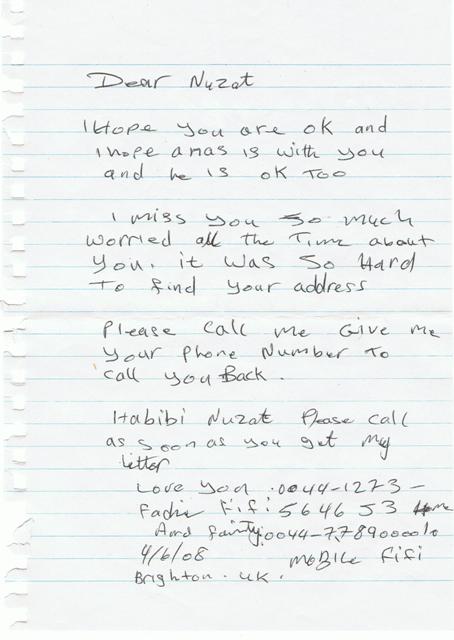 Dear Nuzat
I Hope you are ok and
I hope anas is with you
and he is ok Too
I miss you so much
worried all the Time about
you. it was so Hard
To find your address
Please call me Give me
your phone Number To
call you Back.
Habibi Nuzat Please call
as soon as you get my
letter
Love you .0044-1273-
Fifi 564653 Home
And family. 0044-7789000010
4/6/08 moBile Fifi
Brighton. UK.